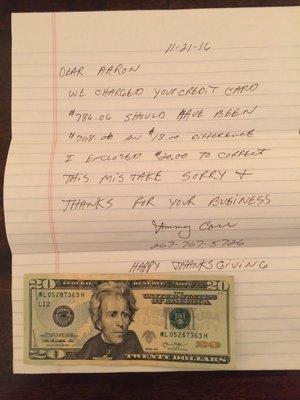 11-21-16
DEAR AARON
WE CHARGED YOUR CREDIT CARD
$786.06 SHOULD HAVE BEEN
$768.06 AN $18.00 DIFFERENCE
I ENCLOSED $20.00 TO CORRECT
THIS MISTAKE SORRY +
THANKS FOR YOUR BUSINESS
267-767-5726
HAPPY THANKSGIVING
20
FEDERAL RESERVE NOTE
20
ML 05287363 H
THE UNITED STATES
L12
ML 05287363 H
20
TWENTY DOLLARS
20